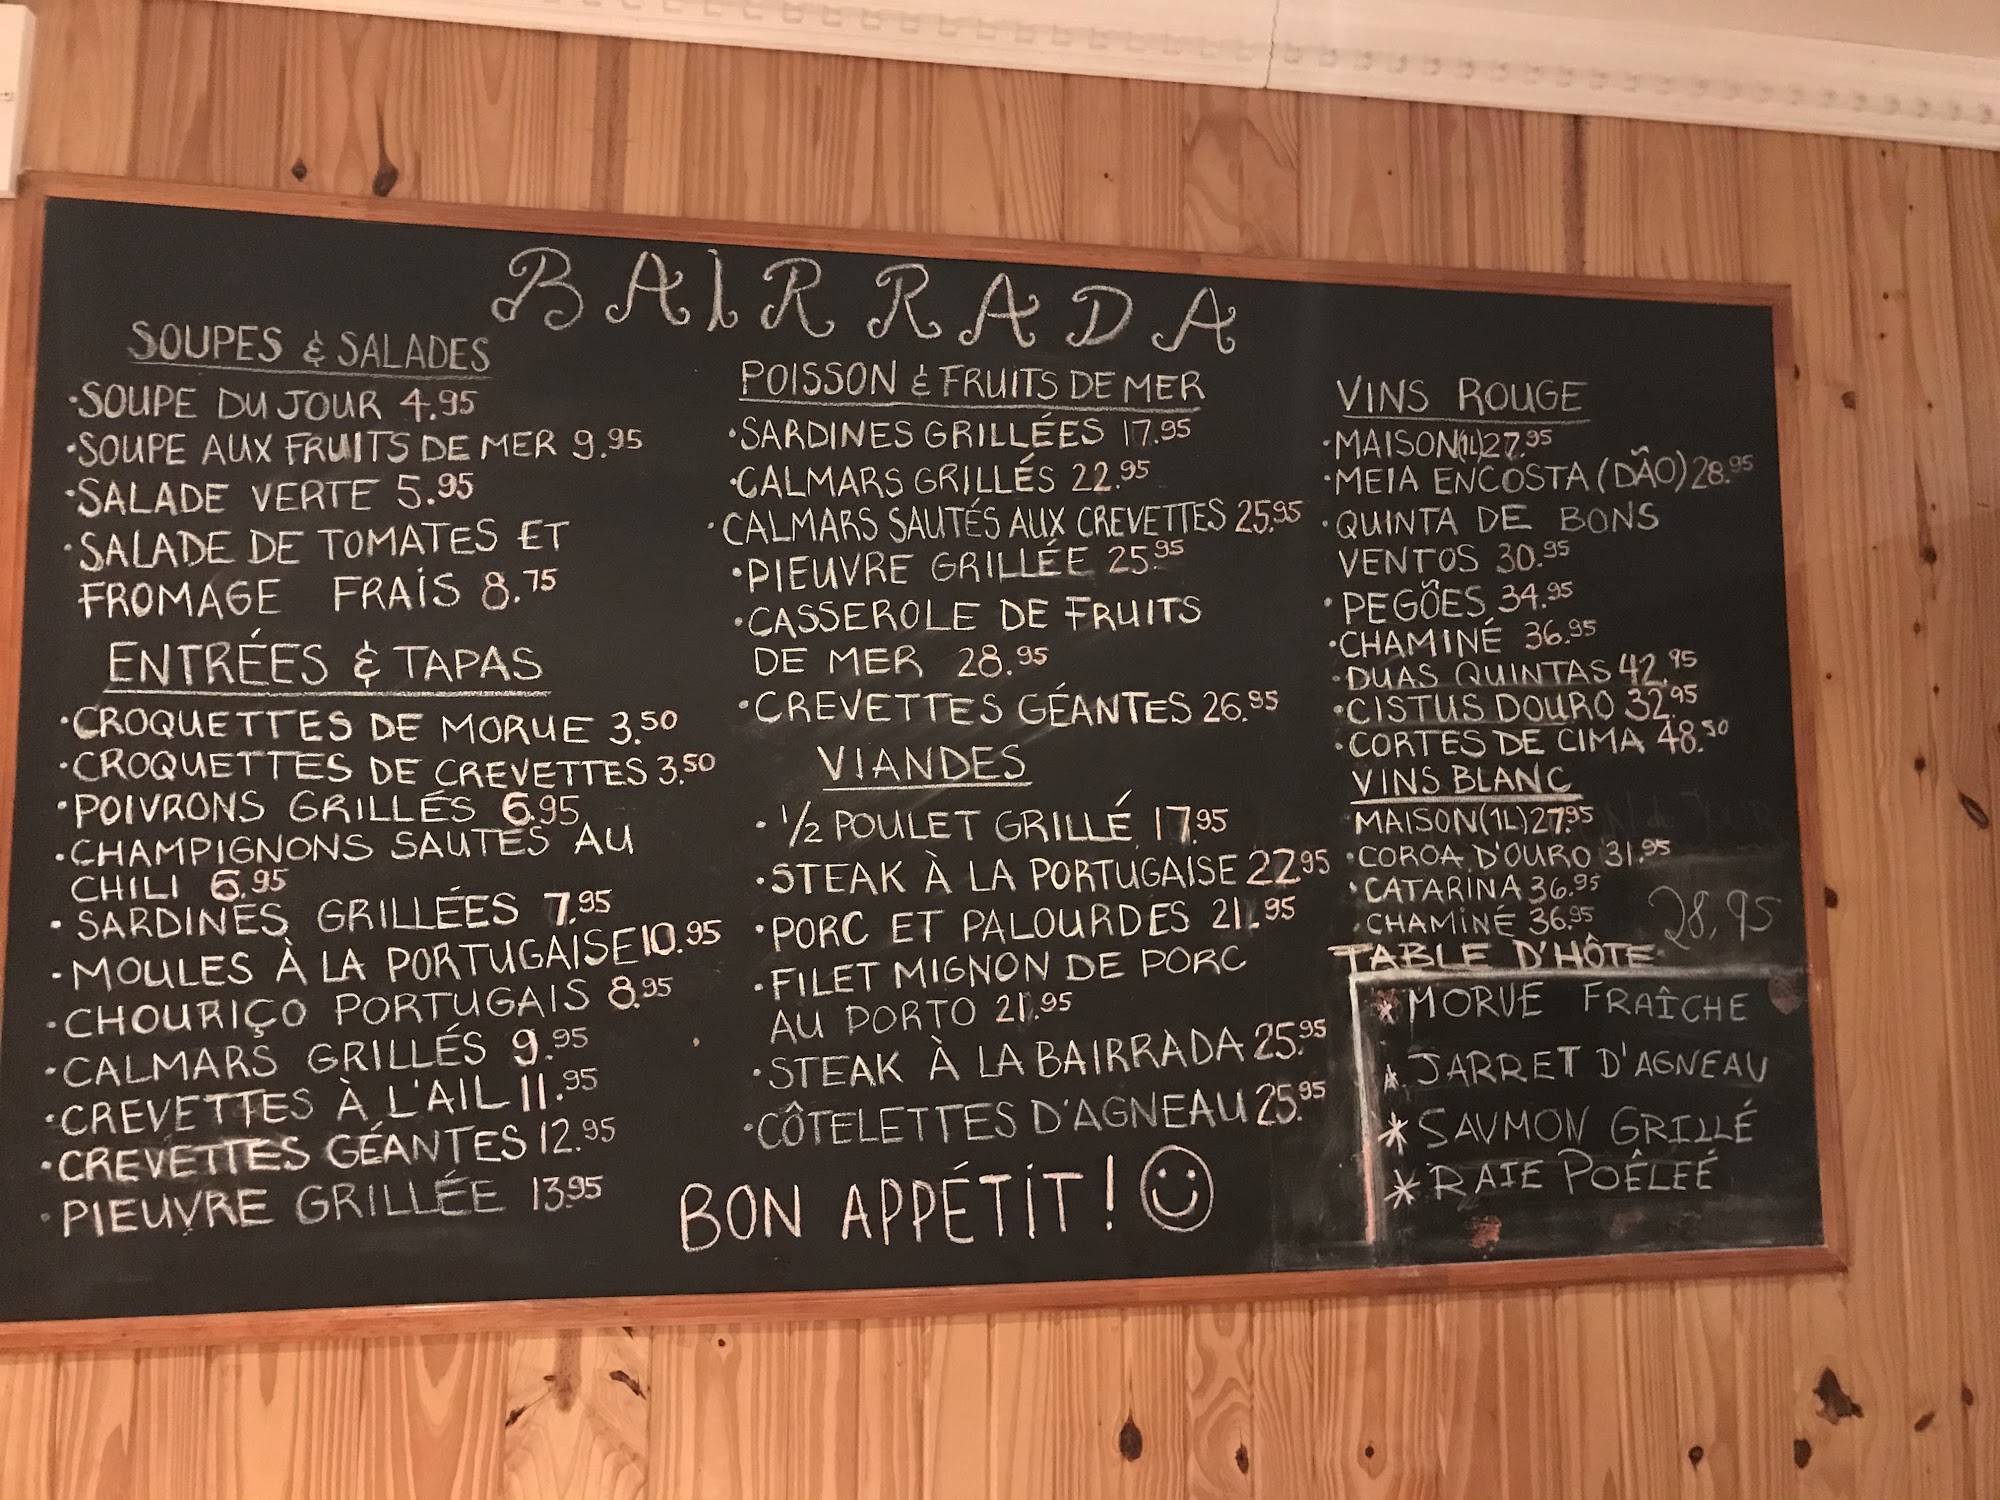 BAIRRADA
SOUPES & SALADES
·SOUPE DU JOUR 4.95
·SOUPE AUX FRUITS DE MER 9.95
·SALADE VERTE 5.95
·SALADE DE TOMATES ET
FROMAGE FRAIS 8.75
ENTRÉES & TAPAS
·CROQUETTES DE MORUE 3.50
·CROQUETTES DE CREVETTES 3.50
·POIVRONS GRILLÉS 6.95
·CHAMPIGNONS SAUTÉS AU
CHILI 6.95
·SARDINES GRILLÉES 7.95
·MOULES À LA PORTUGAISE 10.95
·CHOURIÇO PORTUGAIS 8.95
·CALMARS GRILLÉS 9.95
·CREVETTES À L'AIL 11.95
·CREVETTES GÉANTES 12.95
·PIEUVRE GRILLÉE 13.95
POISSON & FRUITS DE MER
·SARDINES GRILLÉES 17.95
·CALMARS GRILLÉS 22.95
·CALMARS SAUTÉS AUX CREVETTES 25.95
·PIEUVRE GRILLÉE 25.95
·CASSEROLE DE FRUITS
DE MER 28.95
·CREVETTES GÉANTES 26.95
VIANDES
·1/2 POULET GRILLÉ 17.95
·STEAK À LA PORTUGAISE 22.95
·PORC ET PALOURDES 21.95
·FILET MIGNON DE PORC
AU PORTO 21.95
·STEAK À LA BAIRRADA 25.95
·CÔTELETTES D'AGNEAU 25.95
BON APPÉTIT!
VINS ROUGE
·MAISON(1L)27.95
·MEIA ENCOSTA (DÃO)28.95
·QUINTA DE BONS
VENTOS 30.95
·PEGÕES 34.95
·CHAMINÉ 36.95
·DUAS QUINTAS 42.95
·CISTUS DOURO 32.95
·CORTES DE CIMA 48.50
VINS BLANC
·MAISON(1L)27.95
·COROA D'OURO 31.95
·CATARINA 36.95
·CHAMINÉ 36.95
28,95
TABLE D'HÔTE
* MORUE FRAÎCHE
* JARRET D'AGNEAU
* SAUMON GRILLÉ
* RAIE POÊLEÉ